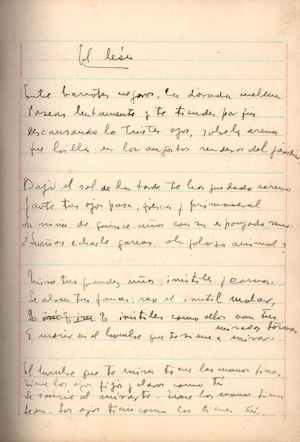 El león
Entre barrotes negros, la dorada melena
Paseas lentamente y te tiendes por fin
Descansando los tristes ojos, sobre la arena
Que brilla en los angostos senderos del jardín
Bajo el sol de la tarde te has quedado sereno
Y ante tus ojos pasa, fresca y primaveral
La niña de quince años con su esponjado seno.
¿Sueñas echarle garras, oh goloso animal?
Miro tus grandes uñas inútiles y corvas.
Se abren tus fauces: veo el inútil molar,
E inútiles como ellos van tus
miradas torvas
A morir en el hombre que te viene a mirar.
El hombre que te mira tiene las manos finas.
Tiene los ojos fijos y claros como tú.
Se sonríe al mirarte. Tiene las manos finas
León. Los ojos tiene como los tienes tú.